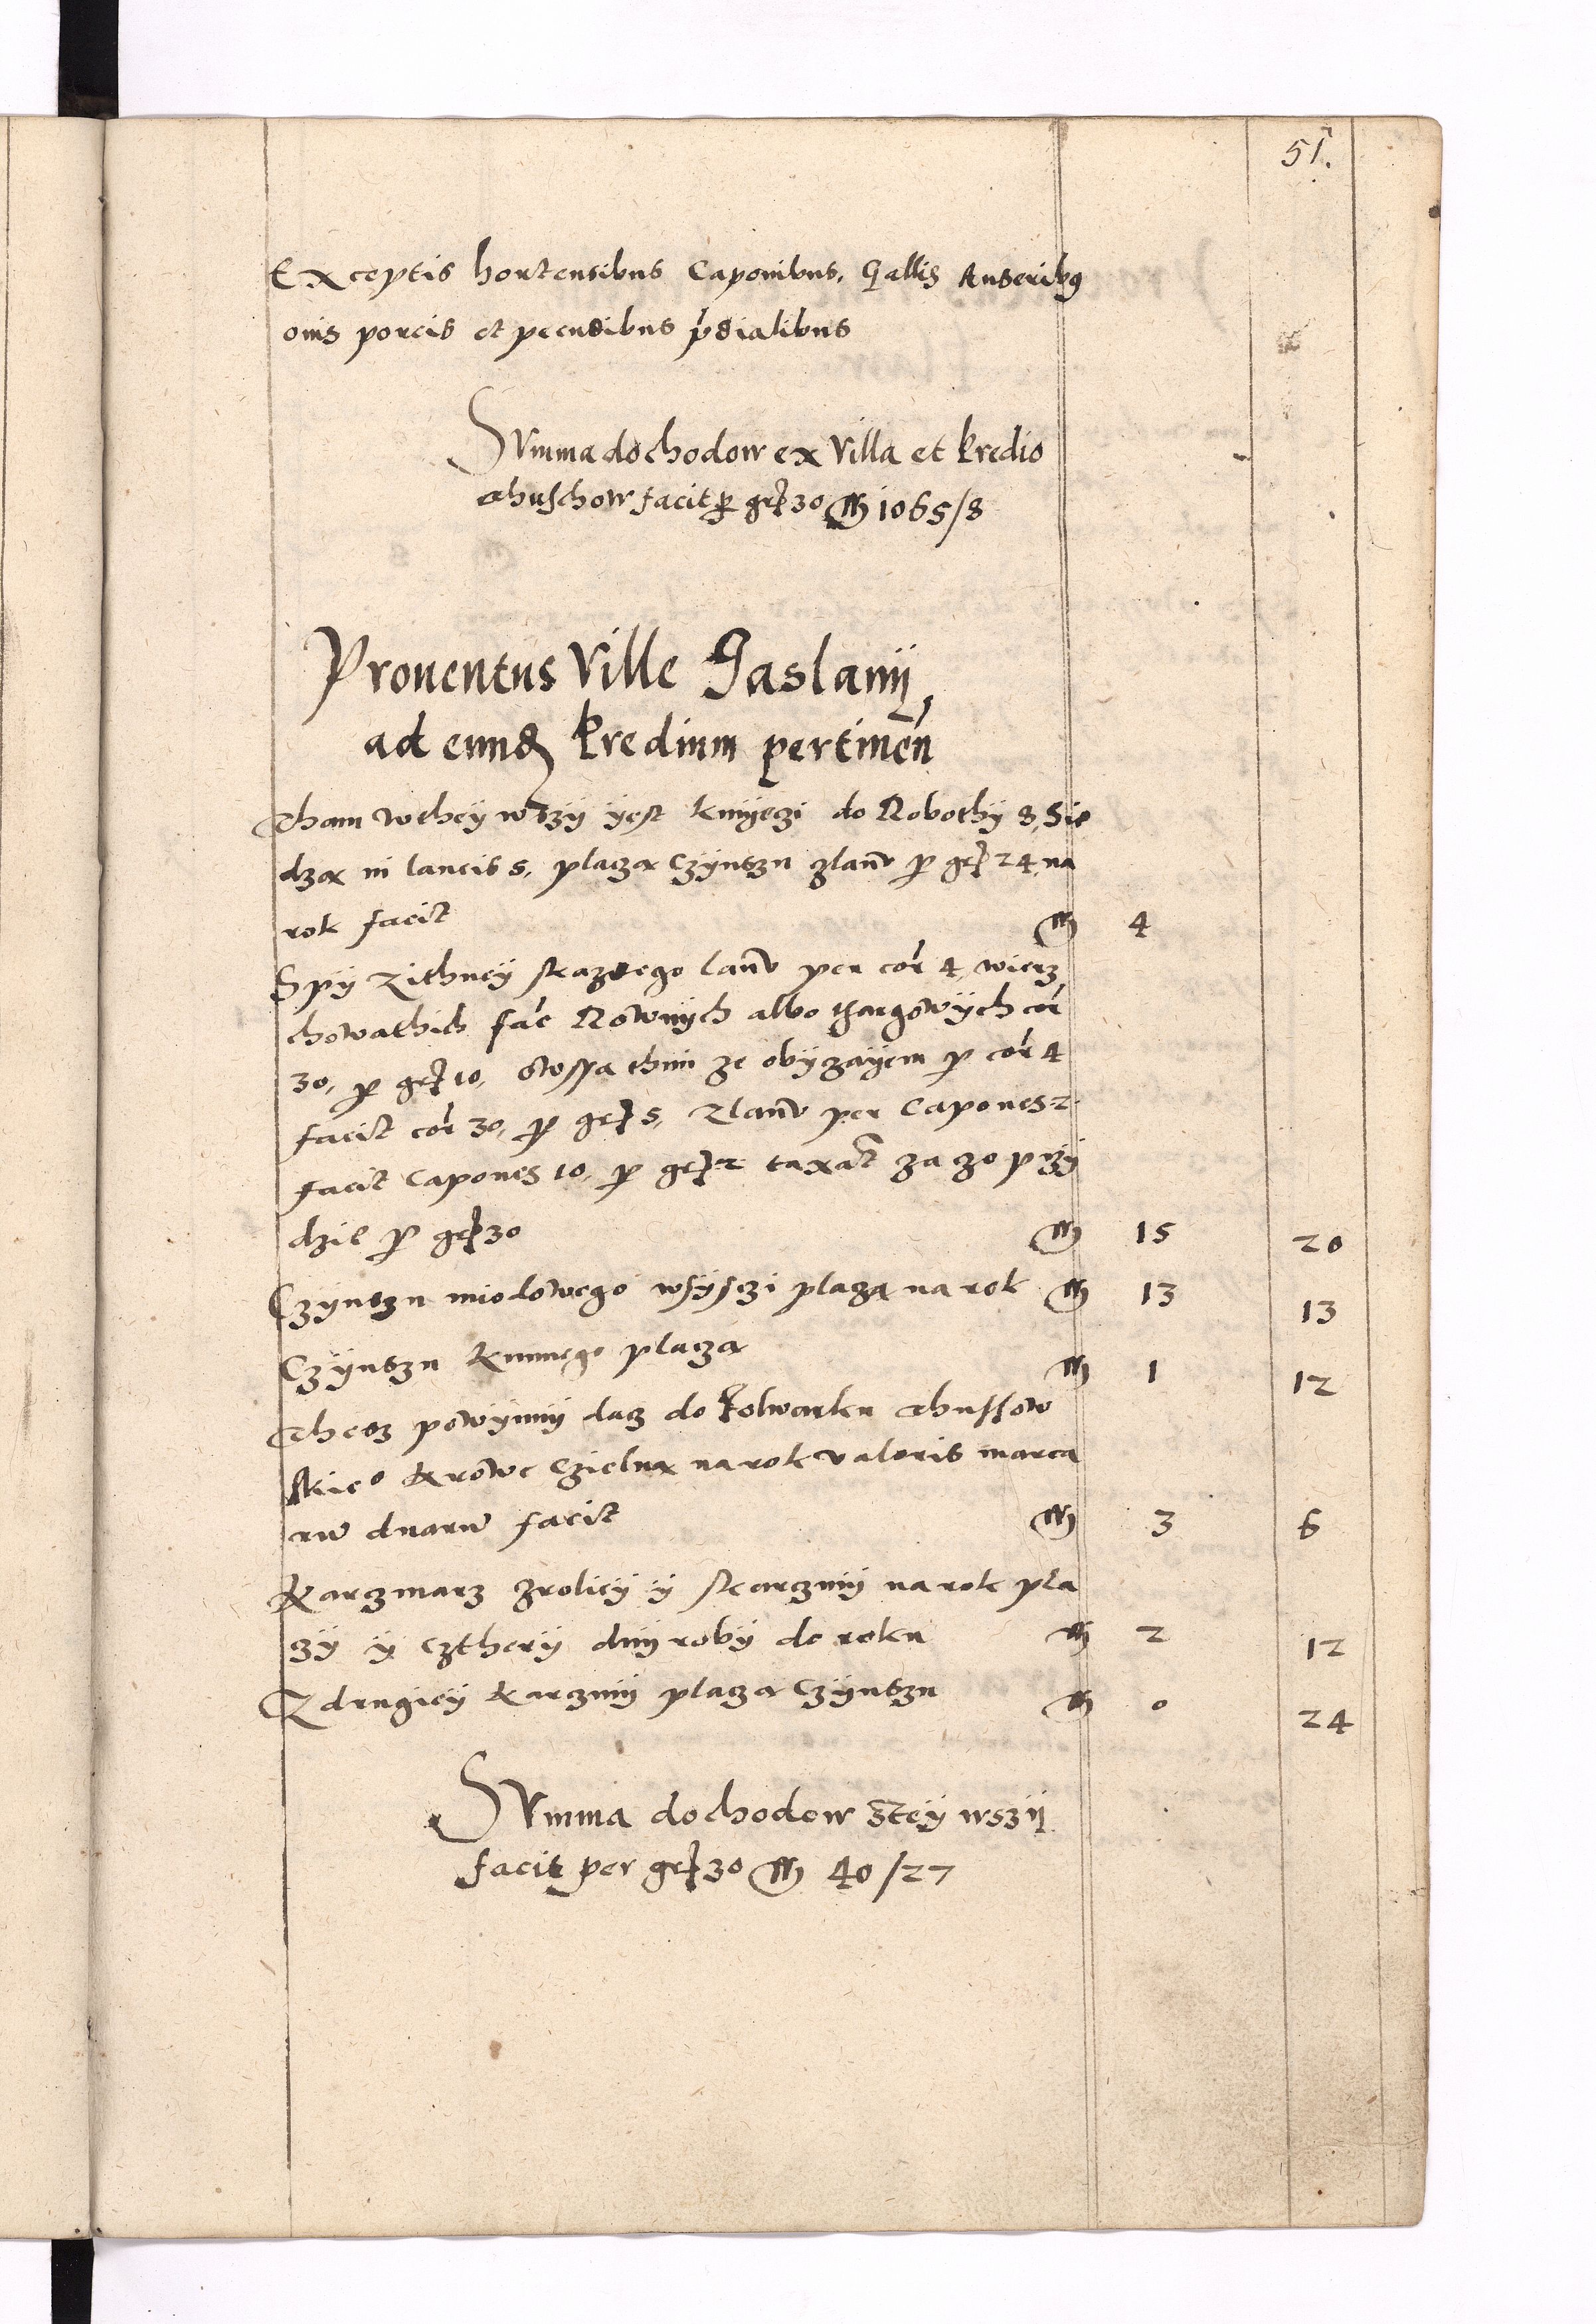 51.
Exceptis hortensibus Caponibus, Gallis Anseribus
ouis porcis et pecudibus p̃dialibus
Summa dochodow ex Villa et Predio
Thuschow facit p gr 30 M 1065/8
Prouentus Ville Jaslanÿ
ad eund Predium pertineñ
Tham wtheÿ wszÿ ÿest kmÿeczi do Robothÿ 8, Sie
dza in laneis 5, placza Czÿnszu zlanu p gr 24, na
rok facit M 4
Spÿ zithneÿ skazdego lanu per cor 4, wierz
chowathich fac Rownÿch albo thargowÿch cor
30, p gr 10, owssa thim ze obÿzaÿem p cor 4
facit cor 30, p gr 5, Zlanu per Capones 2
facit Capones 10, p gr 2 taxat za 30 przÿ
dzie p gr 30 M 15 20
Czÿnszu miodowego wsÿsczi placza na rok M 13 13
Czÿnszu kunnego placza M 1 12
Thesz powÿnnÿ dacz do folwarku Thussow
skie° krowe Czielna na rok valoris marca
ru duaru facit M 3 6
Karczmarz zroliey ÿ skarczmÿ na rok pla
czÿ ÿ czterÿ dnÿ robÿ do roku M 2 12
Z drugieÿ karczmÿ placza Czÿnszu M 0 24
Summa dochodow ztey wszÿ
facit per gr 30 M 40/27